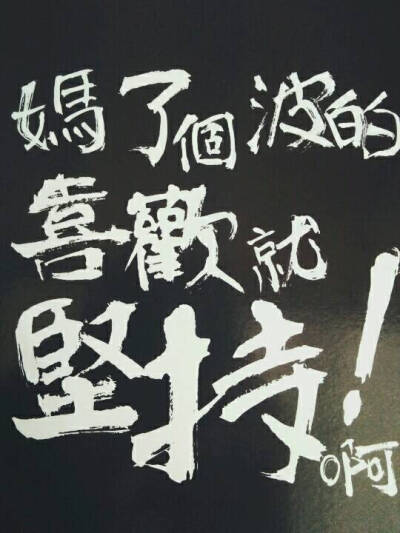 媽了個波的
喜歡就
堅持!啊